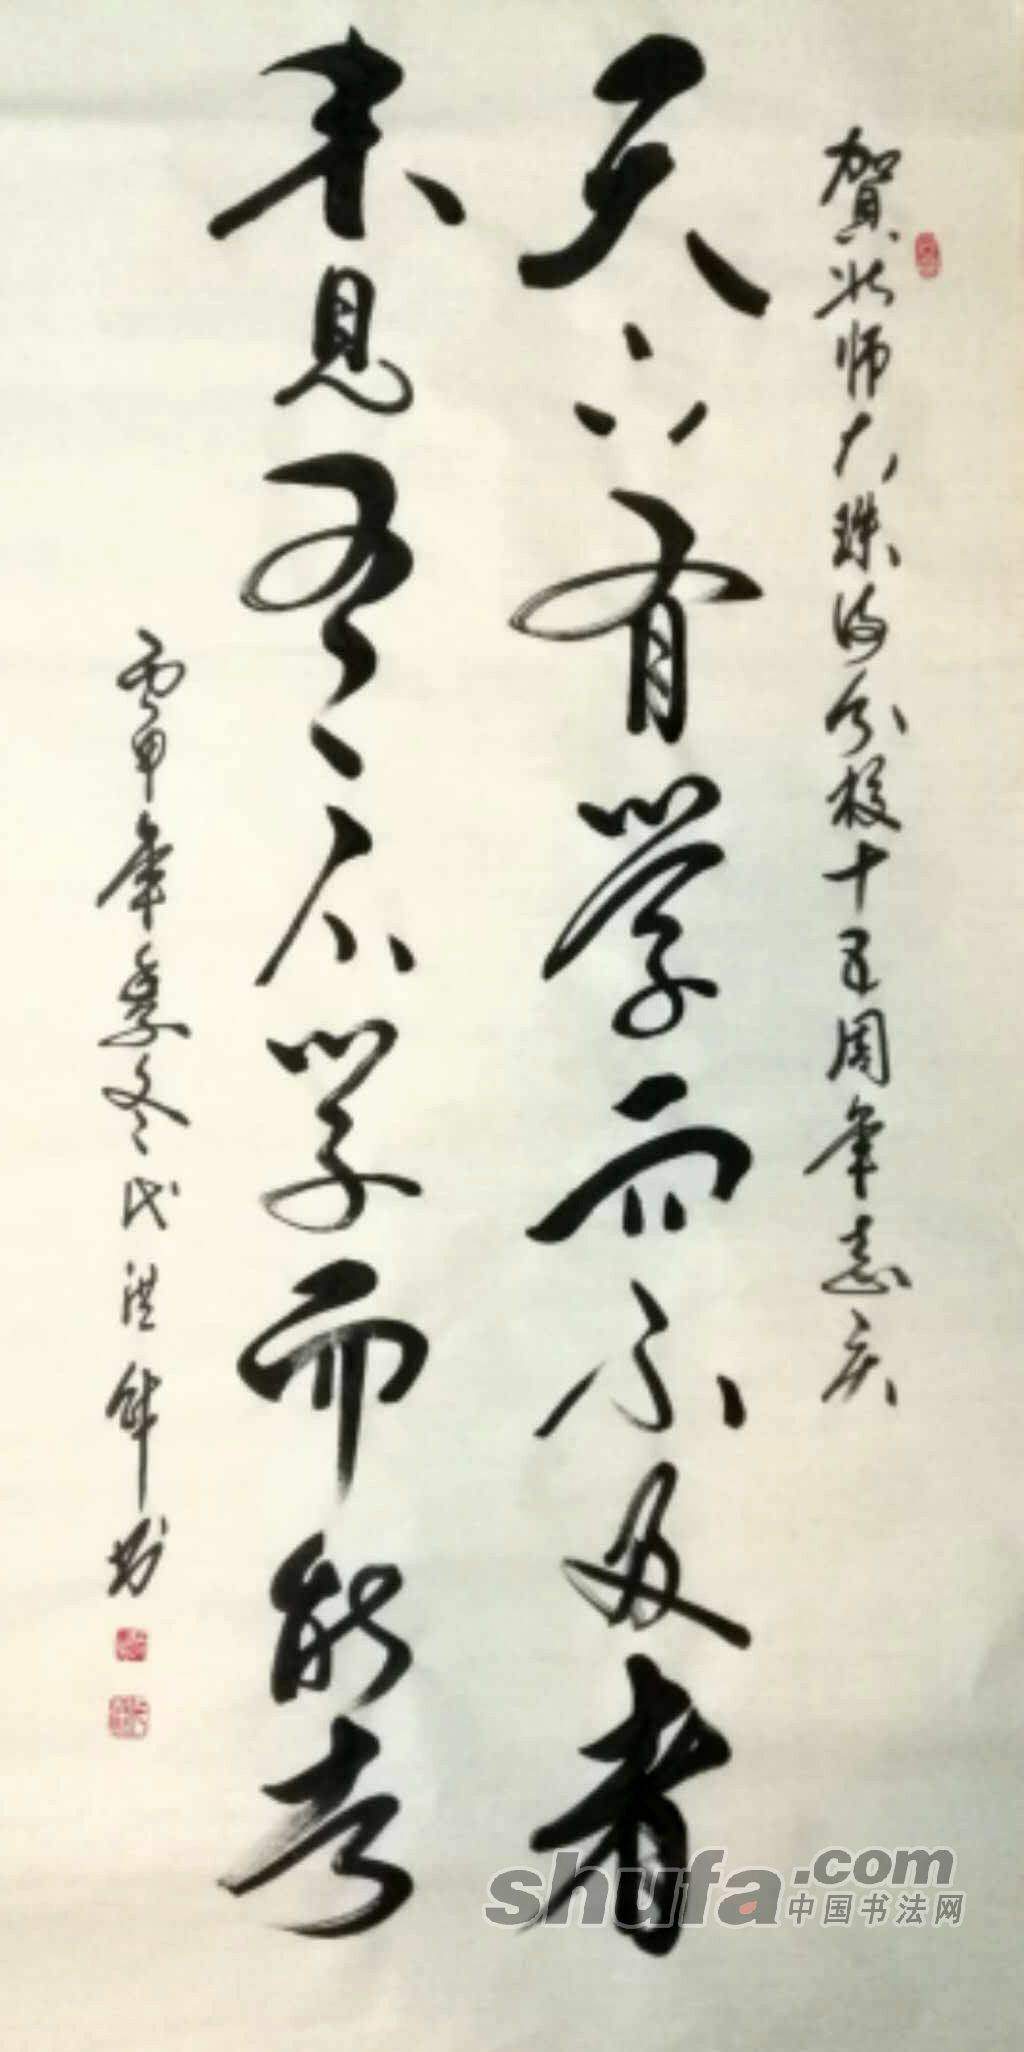 贺北师大珠海分校十五周年志庆
天下有学而不及者
未见有不学而能者
申年季冬代洪
shufa.com
中国书法网